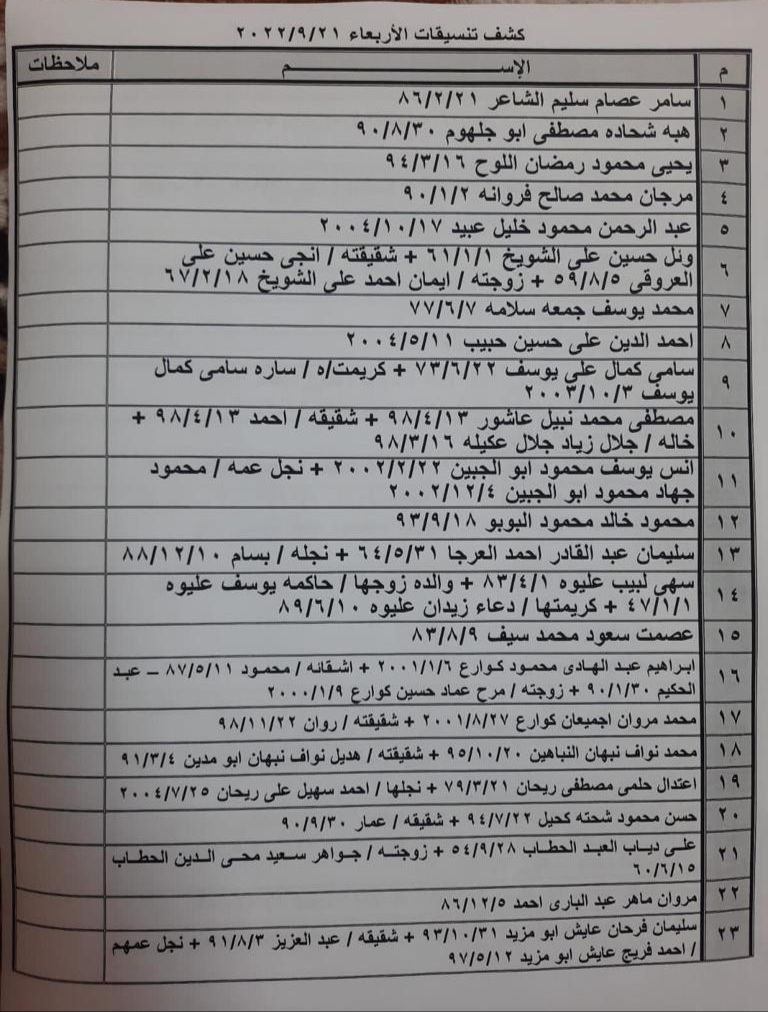 كشف تنسيقات الأربعاء ٢٠٢٢/٩/٢١
م الإســـــــــــم ملاحظات
١ سامر عصام سليم الشاعر ٨٦/٢/٢١
٢ هبه شحاده مصطفى ابو جلهوم ٩٠/٨/٣٠
٣ يحيى محمود رمضان اللوح ٩٤/٣/١٦
٤ مرجان محمد صالح فروانه ٩٠/١/٢
٥ عبد الرحمن محمود خليل عبيد ٢٠٠٤/١٠/١٧
٦ ونل حسين على الشويخ ٦١/١/١ + شقيقته / انجى حسين على
العروقى ٥٩/٨/٥ + زوجته / ايمان احمد على الشويخ ٦٧/٢/١٨
٧ محمد يوسف جمعه سلامه ٧٧/٦/٧
٨ احمد الدين على حسين حبيب ٢٠٠٤/٥/١١
٩ سامى كمال على يوسف ٧٣/٦/٢٢ + كريمت/ه / ساره سامى كمال
يوسف ٢٠٠٣/١٠/٣
١٠ مصطفى محمد نبيل عاشور ٩٨/٤/١٣ + شقيقه / احمد ٩٨/٤/١٣ +
خاله / جلال زياد جلال عكيله ٩٨/٣/١٦
١١ انس يوسف محمود ابو الجبين ٢٠٠٢/٢/٢٢ + نجل عمه / محمود
جهاد محمود ابو الجبين ٢٠٠٢/١٢/٤
١٢ محمود خالد محمود البوبو ٩٣/٩/١٨
١٣ سليمان عبد القادر احمد العرجا ٦٤/٥/٣١ + نجله / بسام ٨٨/١٢/١٠
١٤ سهى لبيب عليوه ٨٣/٤/١ + والده زوجها / حاكمه يوسف عليوه
٤٧/١/١ + كريمتها / دعاء زيدان عليوه ٨٩/٦/١٠
١٥ عصمت سعود محمد سيف ٨٣/٨/٩
١٦ ابراهيم عبد الهادى محمود كوارع ٢٠٠١/١/٦ + اشقائه / محمود ٨٧/٥/١١ – عبد
الحكيم ٩٠/١/٣٠ + زوجته / مرح عماد حسين كوارع ٢٠٠٠/١/٩
١٧ محمد مروان اجميعان كوارع ٢٠٠١/٨/٢٧ + شقيقته / روان ٩٨/١١/٢٢
١٨ محمد نواف نبهان النباهين ٩٥/١٠/٢٠ + شقيقته / هديل نواف نبهان ابو مدين ٩١/٣/٤
١٩ اعتدال حلمى مصطفى ريحان ٧٩/٣/٢١ + نجلها / احمد سهيل على ريحان ٢٠٠٤/٧/٢٥
٢٠ حسن محمود شحته كحيل ٩٤/٧/٢٢ + شقيقه / عمار ٩٠/٩/٣٠
٢١ على دياب العبد الحطاب ٥٤/٩/٢٨ + زوجته / جواهر سعيد محى الدين الحطاب
٦٠/٦/١٥
٢٢ مروان ماهر عبد البارى احمد ٨٦/١٢/٥
٢٣ سليمان فرحان عايش ابو مزيد ٩٣/١٠/٣١ + شقيقه / عبد العزيز ٩١/٨/٣ + نجل عمهم
/ احمد فريج عايش ابو مزيد ٩٧/٥/١٢